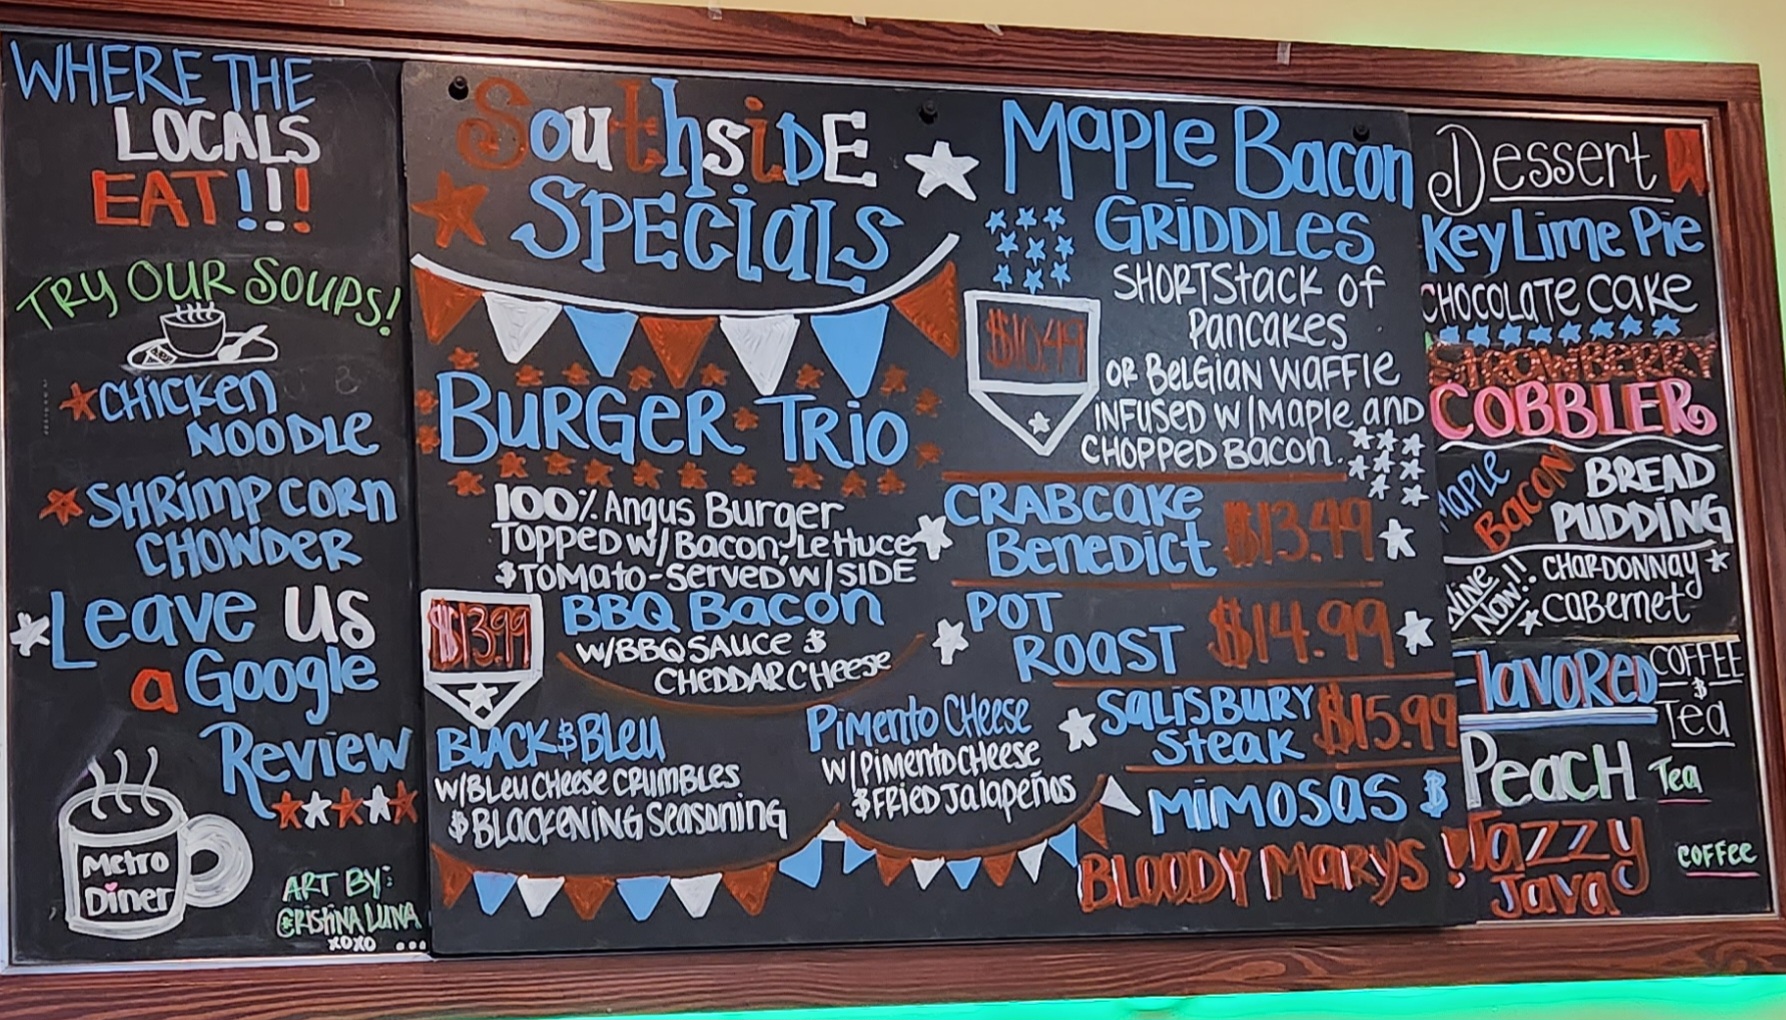 WHERE THE
LOCALS
EAT!!!
TRY OUR SOUPS!
CHICKEN
NOODLE
SHRIMP CORN
CHOWDER
Leave us
a Google
Review
Metro
Diner
ART BY:
CRISTINA LUNA
XOXO ...
Southside
Specials
BURGER TRIO
100% Angus Burger
TOPPED W/ Bacon, Lettuce
$ TOMATO - SERVED W/ SIDE
$13.99
BBQ Bacon
W/BBQ SAUCE $
CHEDDAR CHEESE
BLACK $ Bleu
W/ BLEU CHEESE CRUMBLES
$ BLACKENING SEASONING
Pimento CHeese
W/ PIMENTO CHEESE
$ FRIED Jalapeños
Maple Bacon
GRIDDLES
$10.49
SHORTSTACK OF
PANCAKES
OR BELGIAN WAFFLE
INFUSED W/ MAPLE AND
CHOPPED BACON.
CRABCAKE
Benedict $13.49
POT
ROAST $14.99
SALISBURY
Steak $15.99
MIMOSAS $
BLOODY MARYS!
Dessert
Key Lime Pie
CHOCOLATE CAKE
STROWBERRY
COBBLER
MAPLE
BACON
BREAD
PUDDING
WINE
NOW!!
CHARDONNAY
CABERNET
Flavored
COFFEE
$
Tea
PEACH Tea
Jazzy
Java
COFFEE